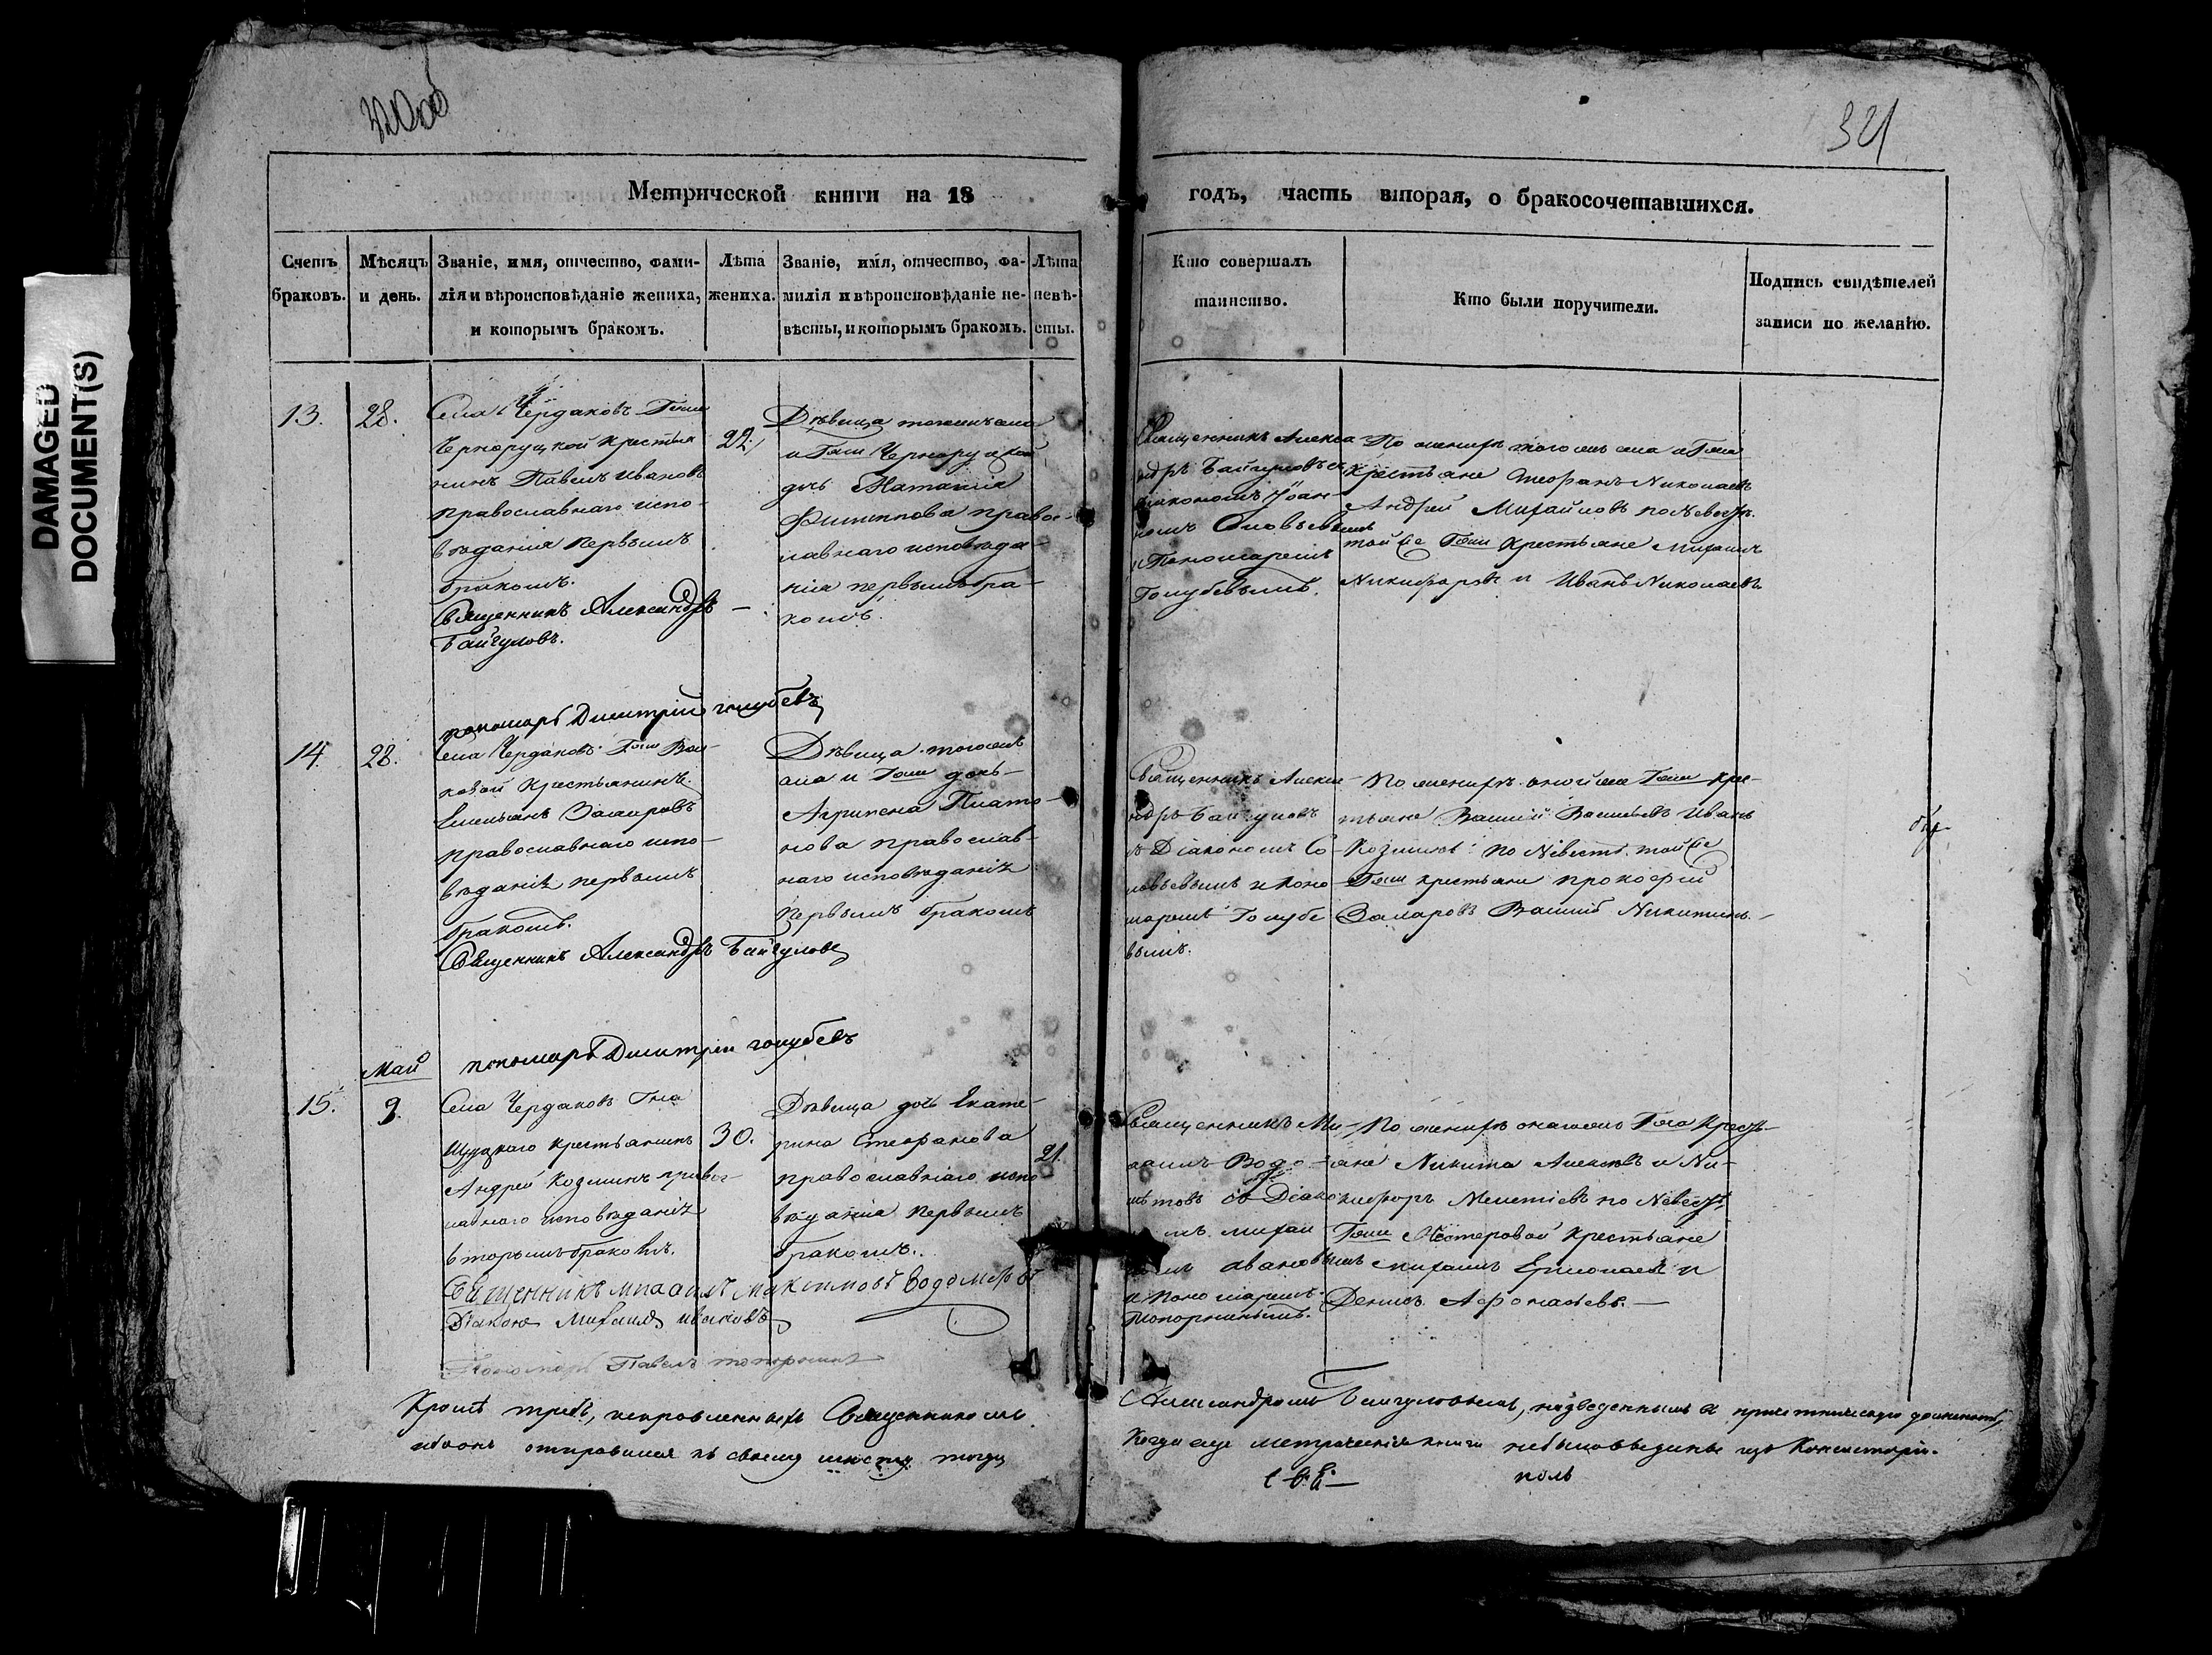 DAMAGED
DOCUMENT(S)
321
Метрической книги на 18
годъ, часть вторая, о бракосочетавшихся.
Счетъ браковъ.
Мѣсяцъ и день.
Званіе, имя, отчество, фами-
лія и вѣроисповѣданіе жениха,
и которымъ бракомъ.
Лѣта жениха.
Званіе, имя, отчество, фа-
милія и вѣроисповѣданіе не-
вѣсты, и которымъ бракомъ.
Лѣта невѣ-
сты.
Кто совершалъ
таинство.
Кто были поручители.
Подпись свидѣтелей
записи по желанію.
13.
28.
Села Чердаковъ Гжи
Черноруцкой крестья
нинъ Павелъ Ивановъ
православнаго испо-
вѣданія первымъ
бракомъ.
Священникъ Александръ
Байгуловъ.
22.
Дѣвица тогожъ села
и Гжи Черноруцкой
дочь Наталія
Филиппова правос-
лавнаго исповѣда-
нія первымъ бра-
комъ.
Священникъ Алекса
ндръ Байгуловъ съ
Діакономъ Іоан-
номъ Соловьевымъ
и Пономаремъ
Голубевымъ.
По женихѣ тогожъ села и Гжи
крестьяне Стефанъ Николаевъ
Андрей Михайловъ по Невѣстѣ
той же Гжи крестьяне Михаилъ
Никифоровъ и Иванъ Николаевъ.
пономарь Димитрій голубевъ
14.
28.
Села Чердаковъ Гжи Вол-
ковой крестьянинъ
Емельянъ Захаровъ
православнаго испо-
вѣданія первымъ
бракомъ.
Священникъ Александръ Байгуловъ
Дѣвица тогожъ
села и Гжи дочь
Агрипена Плато-
нова православ-
наго исповѣданія
первымъ бракомъ
Священникъ Алекса-
ндръ Байгуловъ
съ Діакономъ Со-
ловьевымъ и поно
маремъ Голубе
вымъ.
По женихѣ оной же Гжи кре-
стьяне Василій Васильевъ Иванъ
Козминъ: по Невѣстѣ той же
Гжи крестьяне Прокофій
Захаровъ Василій Никитинъ.
пономарь Димитрій голубевъ
Май
15.
9.
Села Чердаковъ Гна
крестьянинъ
Андрей Козминъ правос-
лавнаго исповѣданія
вторымъ бракомъ.
Священникъ михаилъ максимовъ водолѣтовъ
Діаконъ Михаилъ ивановъ
Пономарь Павелъ топорнинъ
30.
Дѣвица дочь Екате-
рина Стефанова
православнаго испо
вѣданія первымъ
бракомъ.
21.
Священникъ Ми-
хаилъ Водо-
лѣтовъ съ Діако
мъ михаи
ломъ ивановымъ
и пономаремъ
Топорнинымъ.
По женихѣ онагожъ Гна кресть-
яне Никита Алексѣевъ и Ни-
кифоръ Мелетіевъ по Невѣстѣ
Гжи Нестеровой крестьяне
михаилъ Ермолаевъ и
Денисъ Афонасьевъ.
Кромѣ требъ, исправленныхъ Священникомъ
Александромъ Байгуловымъ, низведеннымъ въ причетническую должность,
ибо онъ отправился къ своему мѣсту тогда
Когда еще метрическія книги небыли выведены изъ Консисторіи.